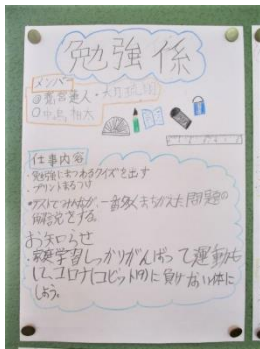 勉強係
メンバー
仕事内容
・勉強にまつわるクイズを出す
・プリントまるつけ
・テストでみんなが、一番多くまちがえた問題の
解説をする。
お知らせ
・家庭学習しっかりがんばって運動も
して、コロナ(コビット19)に負けない体に
しよう。